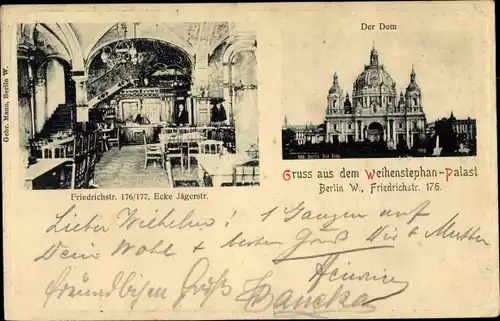 Der Dom
Gebr. Mann, Berlin W.
Berlin. Der Dom
Gruss aus dem Weihenstephan-Palast
Friedrichstr. 176/177, Ecke Jägerstr.
Berlin W., Friedrichstr. 176.
Lieber Wilhelm! 1 Ganzen auf
Dein Wohl & besten Gruß & Mutter
Freundlichen Gruß